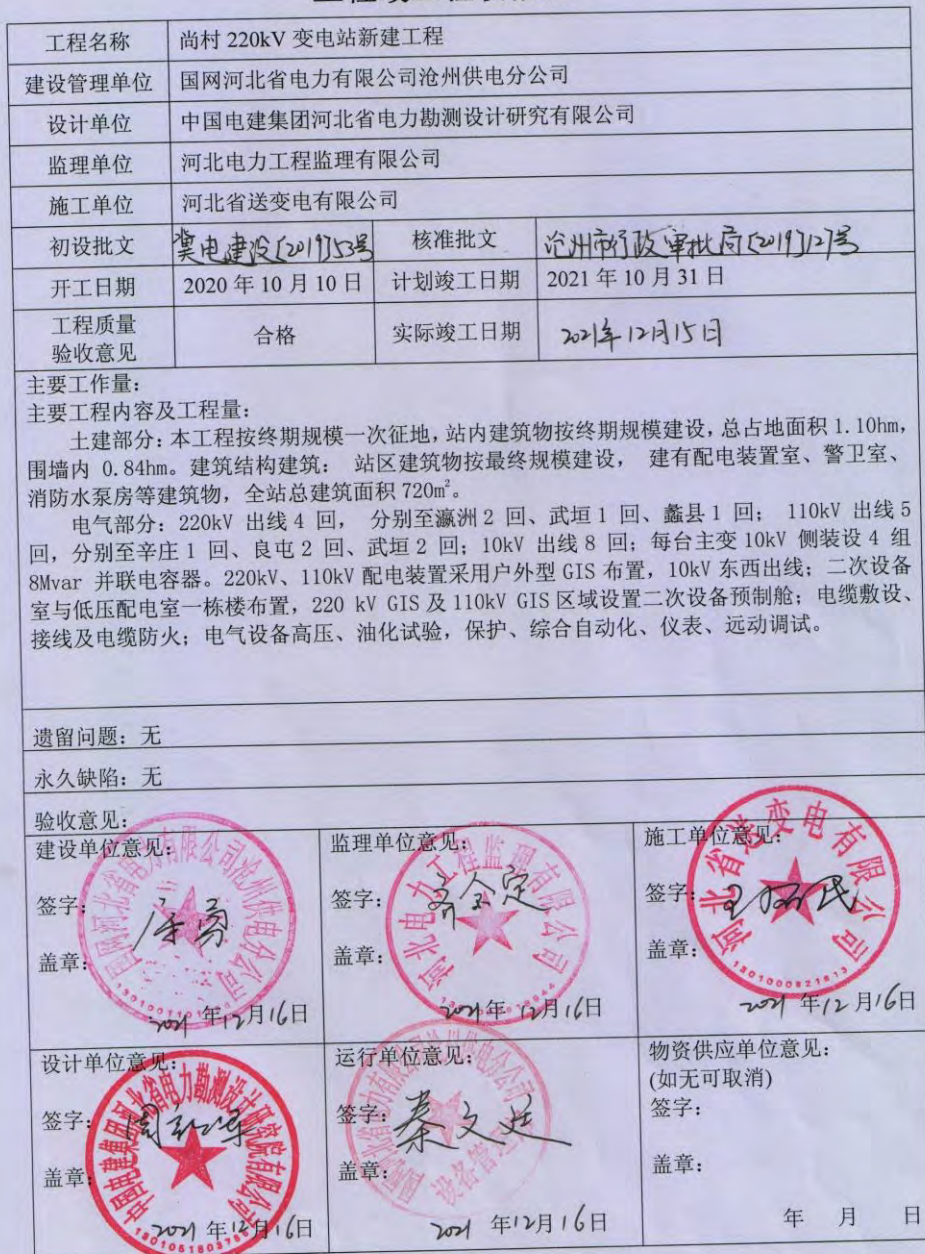 工程名称 尚村 220kV 变电站新建工程
建设管理单位 国网河北省电力有限公司沧州供电分公司
设计单位 中国电建集团河北省电力勘测设计研究有限公司
监理单位 河北电力工程监理有限公司
施工单位 河北省送变电有限公司
初设批文 冀电建设[2019]53号 核准批文 沧州市行政审批局[2019]127号
开工日期 2020 年 10 月 10 日 计划竣工日期 2021 年 10 月 31 日
工程质量
验收意见 合格 实际竣工日期 2021年12月15日
主要工作量：
主要工程内容及工程量：
土建部分：本工程按终期规模一次征地，站内建筑物按终期规模建设，总占地面积 1.10hm，
围墙内 0.84hm。建筑结构建筑： 站区建筑物按最终规模建设， 建有配电装置室、警卫室、
消防水泵房等建筑物，全站总建筑面积 720m²。
电气部分：220kV 出线 4 回， 分别至瀛洲 2 回、武垣 1 回、蠡县 1 回； 110kV 出线 5
回，分别至辛庄 1 回、良屯 2 回、武垣 2 回；10kV 出线 8 回；每台主变 10kV 侧装设 4 组
8Mvar 并联电容器。220kV、110kV 配电装置采用户外型 GIS 布置，10kV 东西出线；二次设备
室与低压配电室一栋楼布置，220 kV GIS 及 110kV GIS 区域设置二次设备预制舱；电缆敷设、
接线及电缆防火；电气设备高压、油化试验，保护、综合自动化、仪表、远动调试。
遗留问题：无
永久缺陷：无
验收意见：
建设单位意见： 监理单位意见： 施工单位意见：
签字： 签字：齐全定 签字：
盖章： 盖章： 盖章：
国网河北省电力有限公司沧州供电分公司
河北电力工程监理有限公司
河北省送变电有限公司
2021 年 12 月 16 日 2021 年 12 月 16 日 2021 年 12 月 16 日
设计单位意见： 运行单位意见： 物资供应单位意见：
(如无可取消)
签字： 签字：秦文廷 签字：
盖章： 盖章： 盖章：
中国电建集团河北省电力勘测设计研究院有限公司
设备管理
2021 年 12 月 16 日 2021 年 12 月 16 日 年 月 日